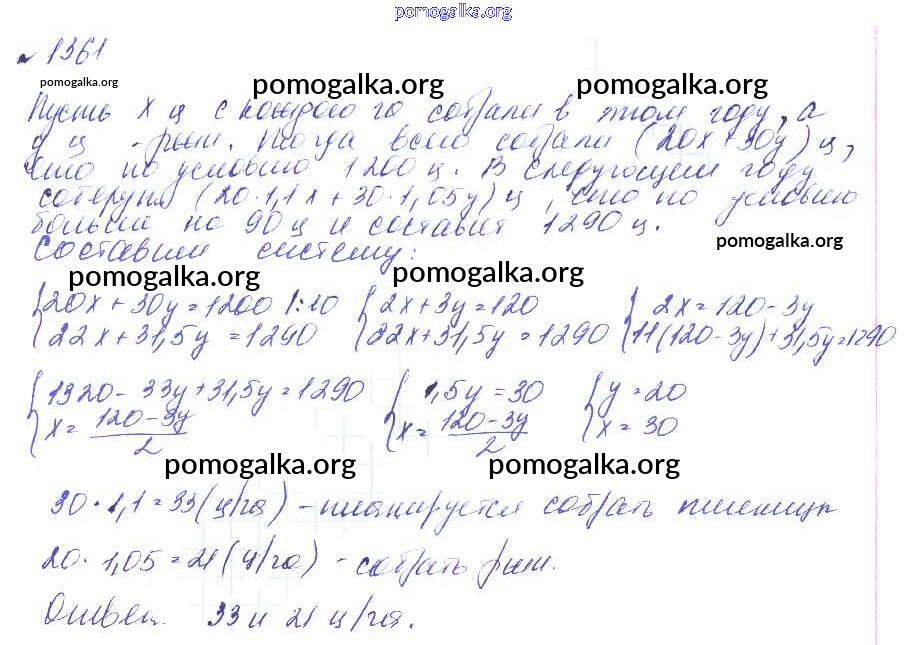 pomogalka.org
№ 1361
pomogalka.org pomogalka.org pomogalka.org
Пусть x ц с каждого га собрали в этом году, а
y ц - ржи. Тогда всего собрали (20x + 30y) ц,
что по условию 1200 ц. В следующем году
соберут (20·1,1x + 30·1,05y) ц, что по условию
больше на 90 ц и составит 1290 ц.
pomogalka.org
Составим систему:
pomogalka.org pomogalka.org
{20x + 30y = 1200 |:10 {2x + 3y = 120 {2x = 120 - 3y
{22x + 31,5y = 1290 {22x + 31,5y = 1290 {11(120 - 3y) + 31,5y = 1290
{1320 - 33y + 31,5y = 1290 {1,5y = 30 {y = 20
{x = (120 - 3y)/2 {x = (120 - 3y)/2 {x = 30
pomogalka.org pomogalka.org
30 · 1,1 = 33 (ц/га) - планируется собрать пшеницы
20 · 1,05 = 21 (ц/га) - собрать ржи.
Ответ. 33 и 21 ц/га.